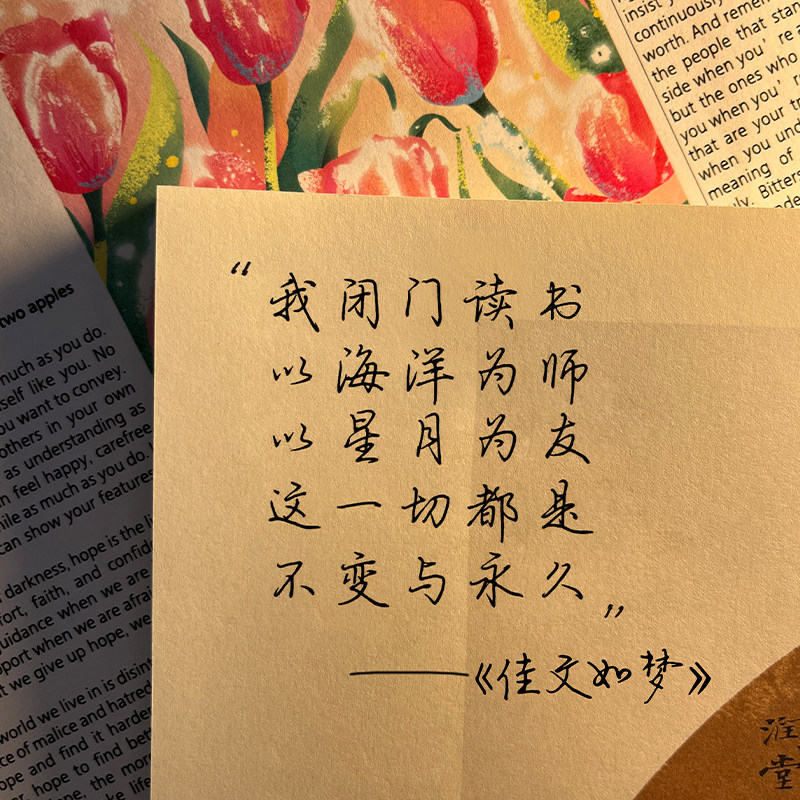 insist
continuously
worth. And remem
the people that stan
side when you're a
but the ones who
you when you'r
that are your tr
when you und
meaning of
Bitters
two apples
much as you do.
self like you. No
ou want to convey.
others in your own
as understanding as
feel happy, carefree
ile as much as you do.
can show your features
darkness, hope is the
fort, faith, and confid
uidance when we are
port when we are afrai
t we give up hope, we
world we live in is disint
ce of malice and hatred
ope and find it harder
hope to find bett
the more
life
“我闭门读书
以海洋为师
以星月为友
这一切都是
不变与永久”
——《佳文如梦》
涯
堂